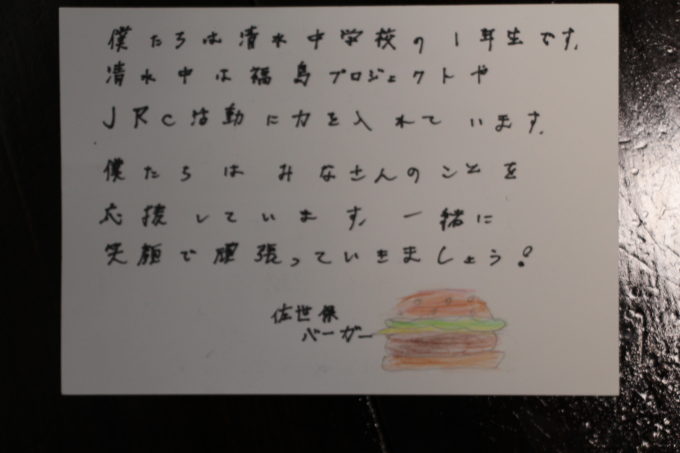 僕たちは清水中学校の1年生です。
清水中は福島プロジェクトや
JRC活動に力を入れています。
僕たちはみなさんのことを
応援しています。一緒に
笑顔で頑張っていきましょう。
佐世保
バーガー